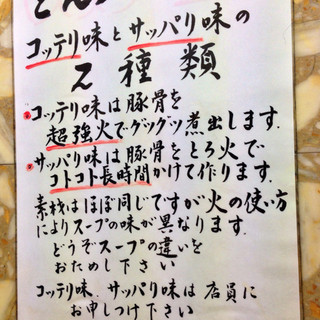 コッテリ味とサッパリ味の
2種類
コッテリ味は豚骨を
超強火でグッグツ煮出します.
サッパリ味は豚骨をとろ火で
コトコト長時間かけて作ります.
素材はほぼ同じですが火の使い方
によりスープの味が異なります.
どうぞスープの違いを
おためし下さい
コッテリ味、サッパリ味は店員に
お申しつけ下さい